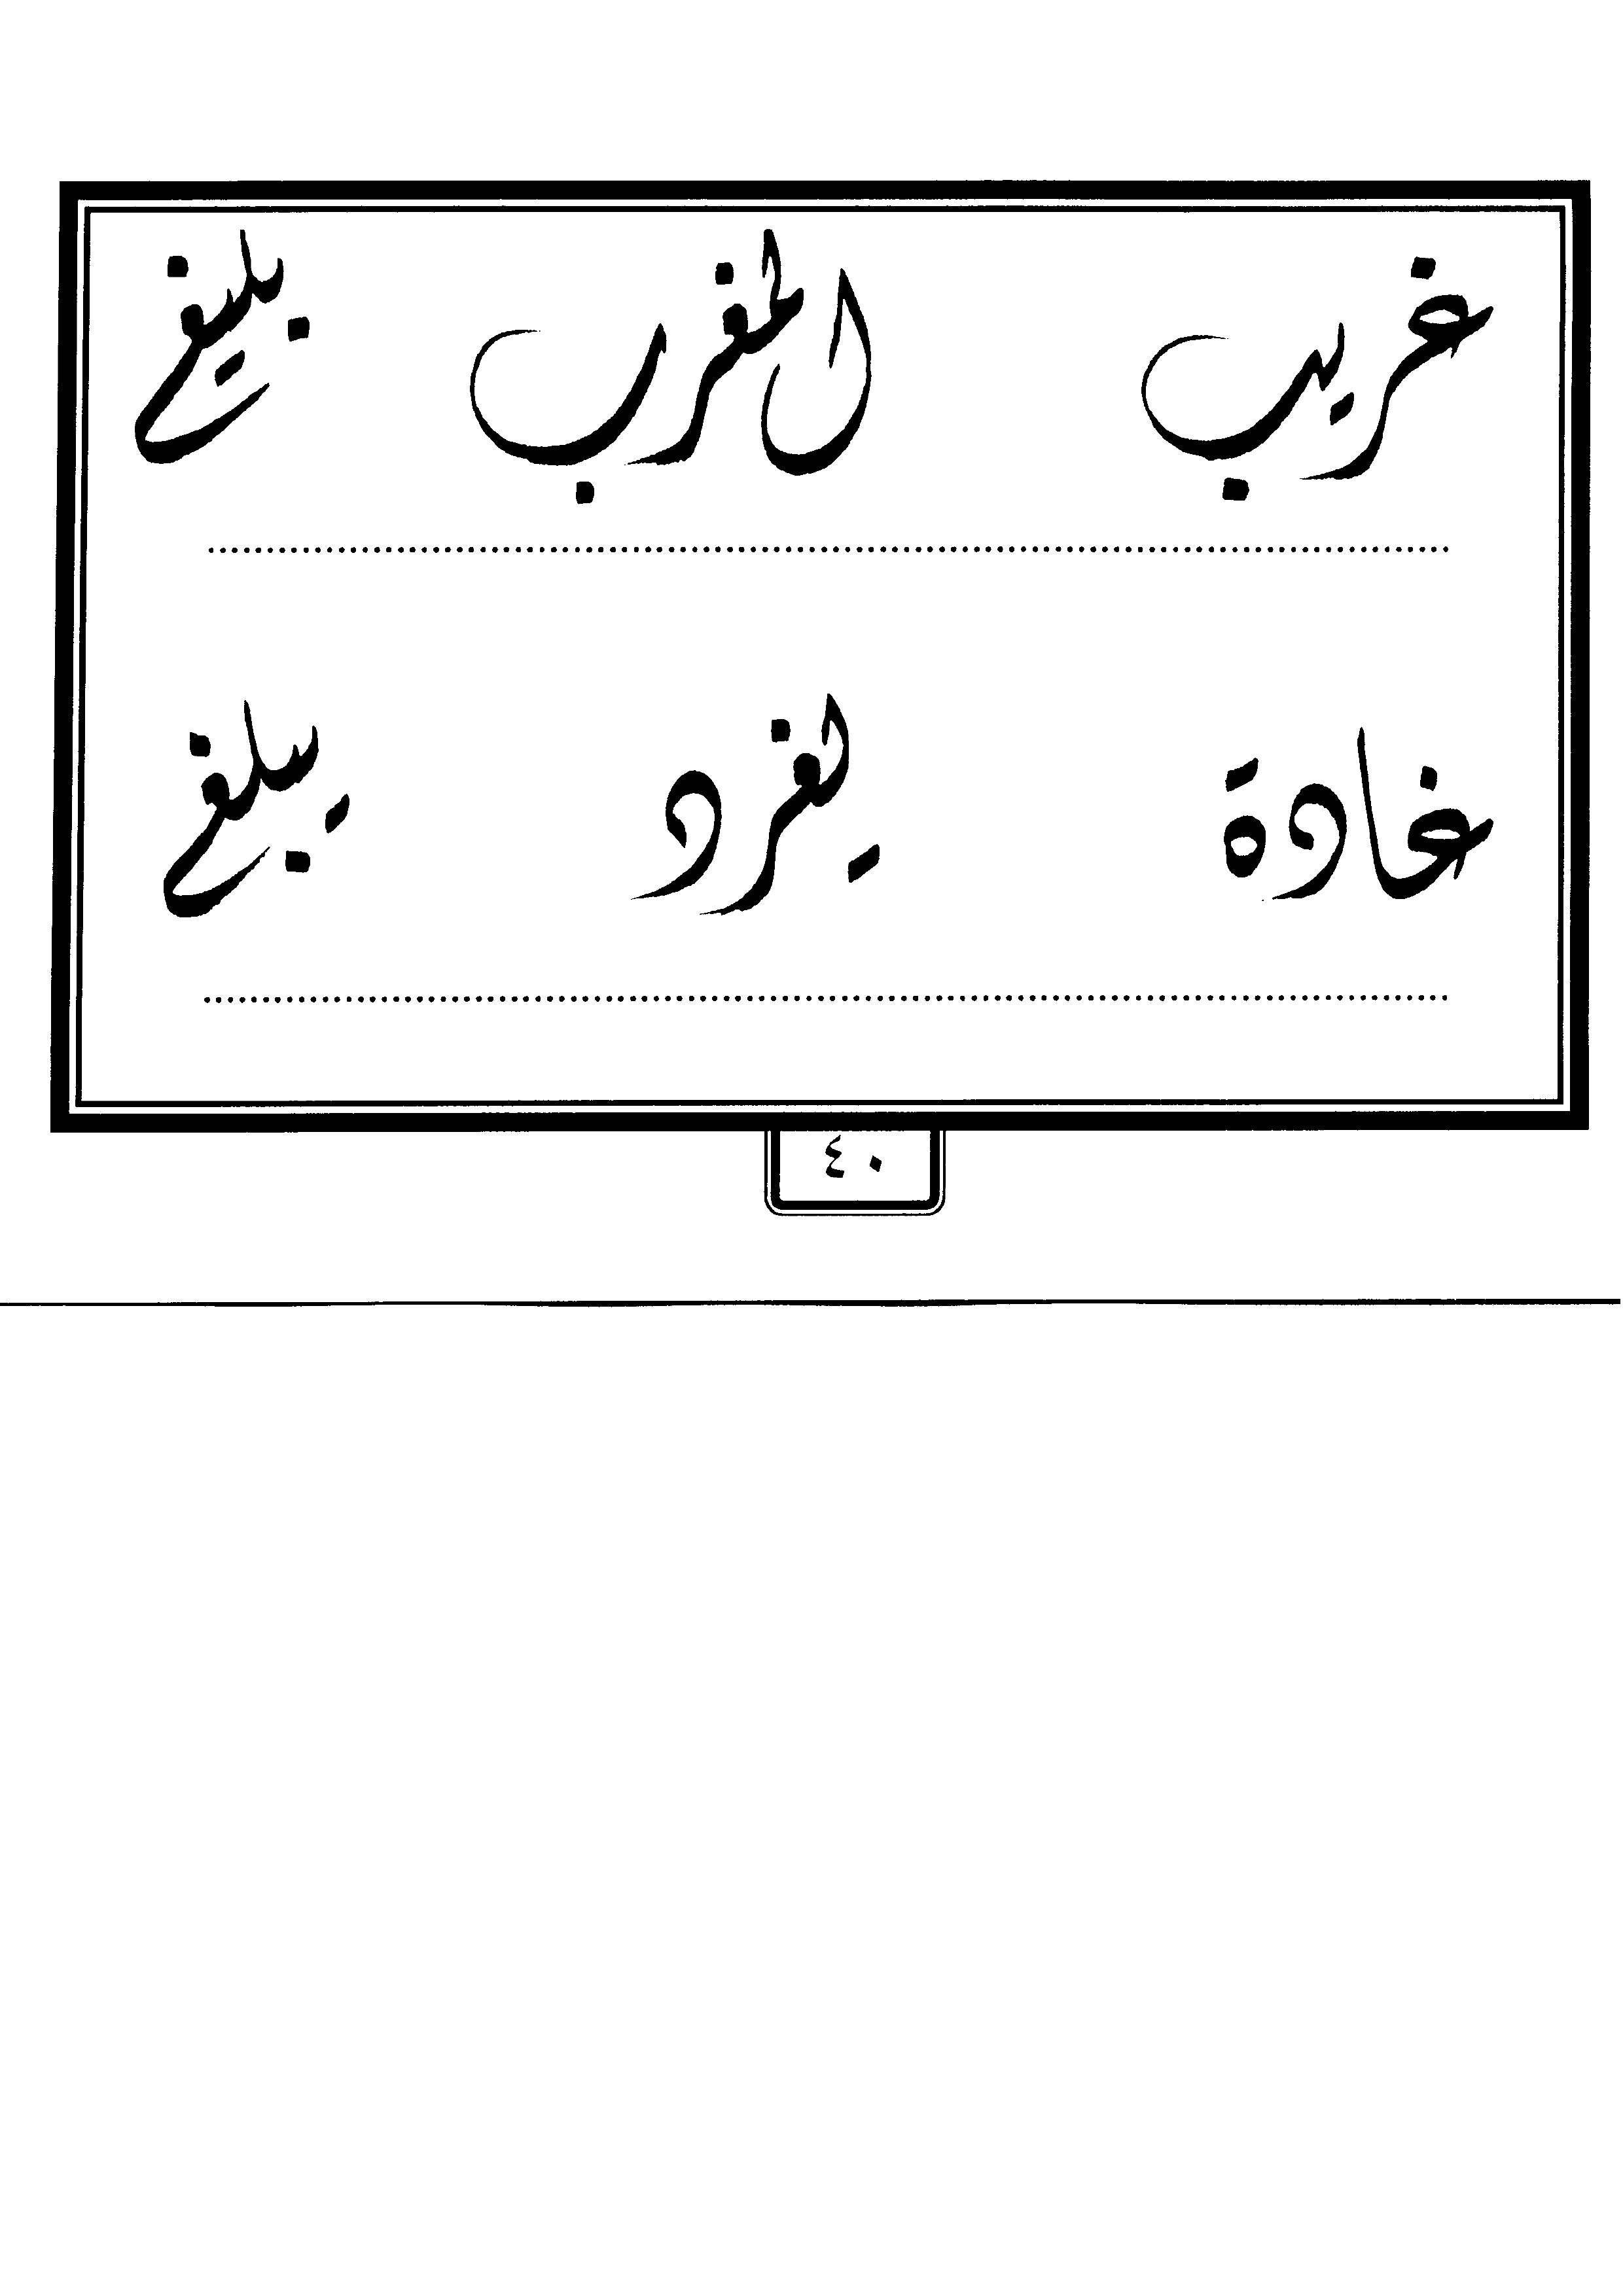 غريب المغرب بليغ
غادة يغرد يبلغ
٤٠